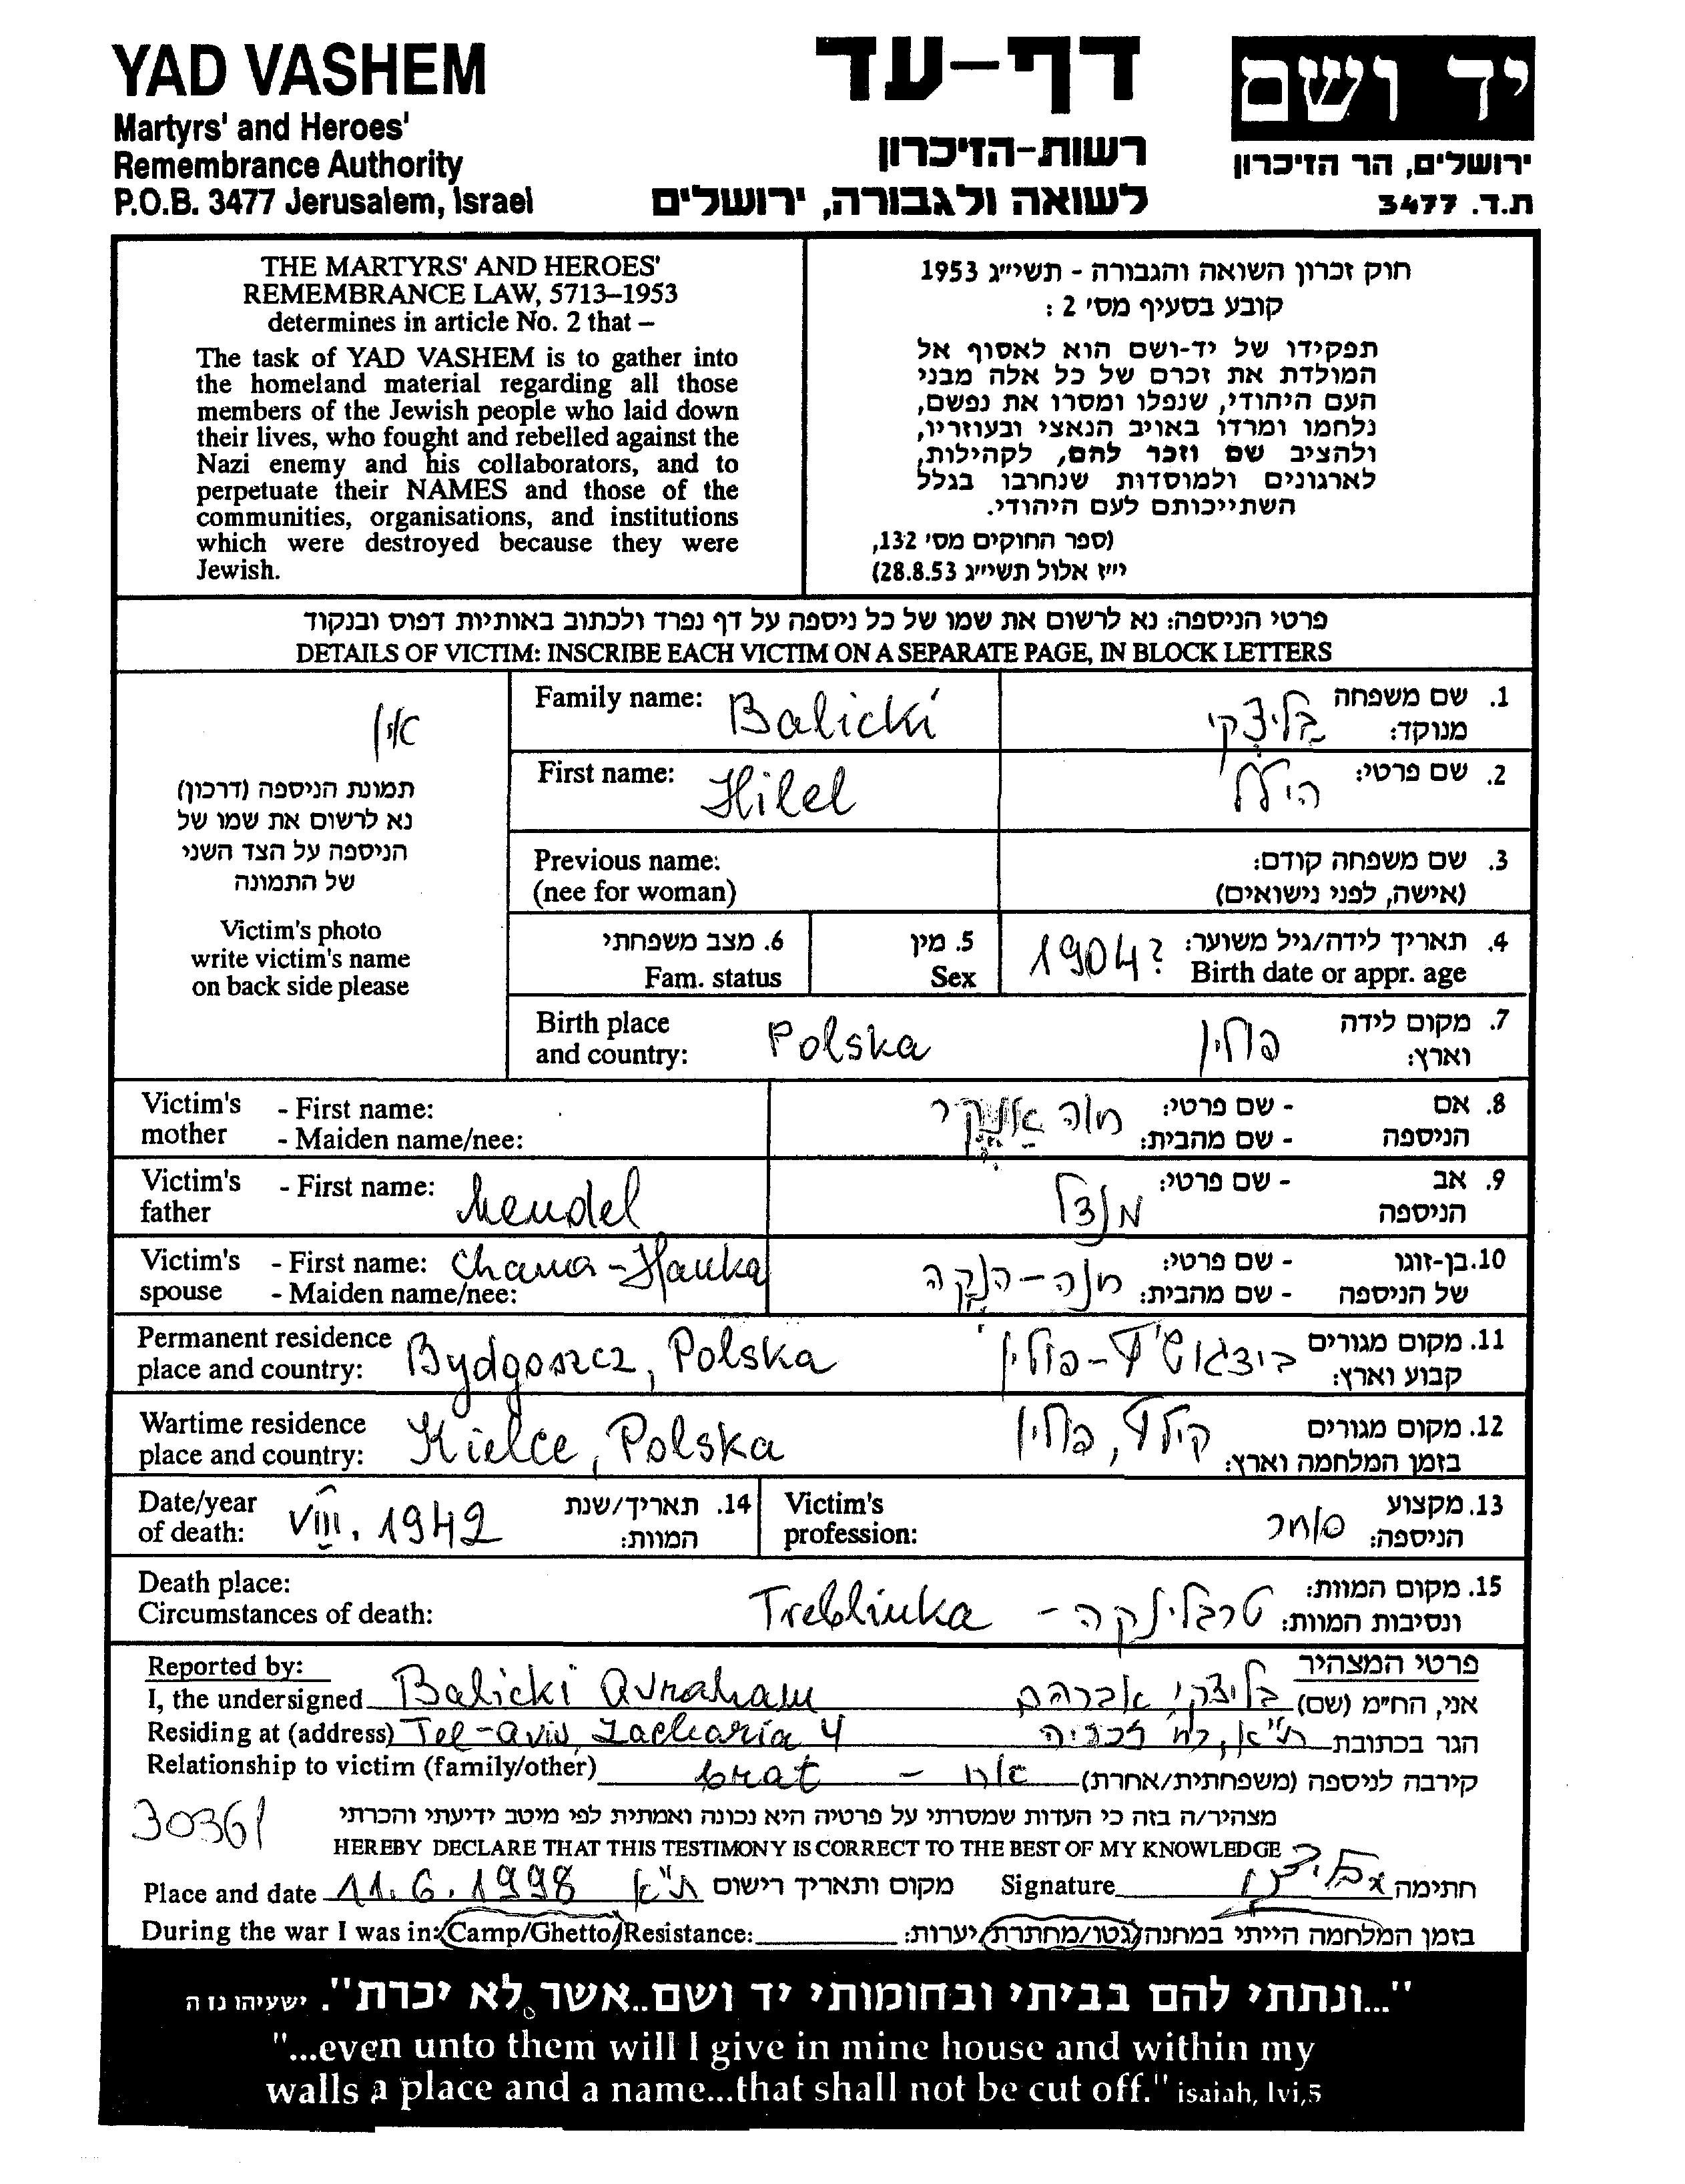 YAD VASHEM
Martyrs' and Heroes'
Remembrance Authority
P.O.B. 3477 Jerusalem, Israel
דף-עד
רשות-הזיכרון
לשואה ולגבורה, ירושלים
יד ושם
ירושלים, הר הזיכרון
ת.ד. 3477
THE MARTYRS' AND HEROES'
REMEMBRANCE LAW, 5713–1953
determines in article No. 2 that –
The task of YAD VASHEM is to gather into
the homeland material regarding all those
members of the Jewish people who laid down
their lives, who fought and rebelled against the
Nazi enemy and his collaborators, and to
perpetuate their NAMES and those of the
communities, organisations, and institutions
which were destroyed because they were
Jewish.
חוק זכרון השואה והגבורה - תשי״ג 1953
קובע בסעיף מס׳ 2 :
תפקידו של יד-ושם הוא לאסוף אל
המולדת את זכרם של כל אלה מבני
העם היהודי, שנפלו ומסרו את נפשם,
נלחמו ומרדו באויב הנאצי ובעוזריו,
ולהציב שם וזכר להם, לקהילות,
לארגונים ולמוסדות שנחרבו בגלל
השתייכותם לעם היהודי.
(ספר החוקים מס׳ 132,
י״ז אלול תשי״ג 28.8.53)
פרטי הניספה: נא לרשום את שמו של כל ניספה על דף נפרד ולכתוב באותיות דפוס ובנקוד
DETAILS OF VICTIM: INSCRIBE EACH VICTIM ON A SEPARATE PAGE, IN BLOCK LETTERS
אין
תמונת הניספה (דרכון)
נא לרשום את שמו של
הניספה על הצד השני
של התמונה
Victim's photo
write victim's name
on back side please
Family name: Balicki בליצקי 1. שם משפחה
מנוקד:
First name: Hilel הילל 2. שם פרטי:
Previous name: 3. שם משפחה קודם:
(nee for woman) (אישה, לפני נישואים)
6. מצב משפחתי 5. מין 1904? 4. תאריך לידה/גיל משוער:
Fam. status Sex Birth date or appr. age
Birth place Polska פולין 7. מקום לידה
and country: וארץ:
Victim's - First name: חוה - שם פרטי: 8. אם
mother - Maiden name/nee: - שם מהבית: הניספה
Victim's - First name: Mendel מנדל - שם פרטי: 9. אב
father הניספה
Victim's - First name: Chana-Hanka חנה-הנקה - שם פרטי: 10. בן-זוגו
spouse - Maiden name/nee: - שם מהבית: של הניספה
Permanent residence Bydgoszcz, Polska בידגושץ'-פולין 11. מקום מגורים
place and country: קבוע וארץ:
Wartime residence Kielce, Polska קילץ, פולין 12. מקום מגורים
place and country: בזמן המלחמה וארץ:
Date/year VIII. 1942 14. תאריך/שנת
of death: המוות:
Victim's סוחר 13. מקצוע
profession: הניספה:
Death place: Treblinka - טרבלינקה 15. מקום המוות:
Circumstances of death: ונסיבות המוות:
Reported by: פרטי המצהיר
I, the undersigned Balicki Avraham בליצקי אברהם אני, הח״מ (שם)
Residing at (address) Tel-Aviv, Zacharia 4 ת"א, רח' זכריה הגר בכתובת
Relationship to victim (family/other) brat - אח קירבה לניספה (משפחתית/אחרת)
30361
מצהיר/ה בזה כי העדות שמסרתי על פרטיה היא נכונה ואמתית לפי מיטב ידיעתי והכרתי
HEREBY DECLARE THAT THIS TESTIMONY IS CORRECT TO THE BEST OF MY KNOWLEDGE
Place and date 11.6.1998 ת"א מקום ותאריך רישום Signature חתימה
During the war I was in: Camp/Ghetto/Resistance: בזמן המלחמה הייתי במחנה/גטו/מחתרת/יערות:
"...ונתתי להם בביתי ובחומותי יד ושם..אשר לא יכרת". ישעיהו נו ה
"...even unto them will I give in mine house and within my
walls a place and a name...that shall not be cut off." isaiah, lvi,5